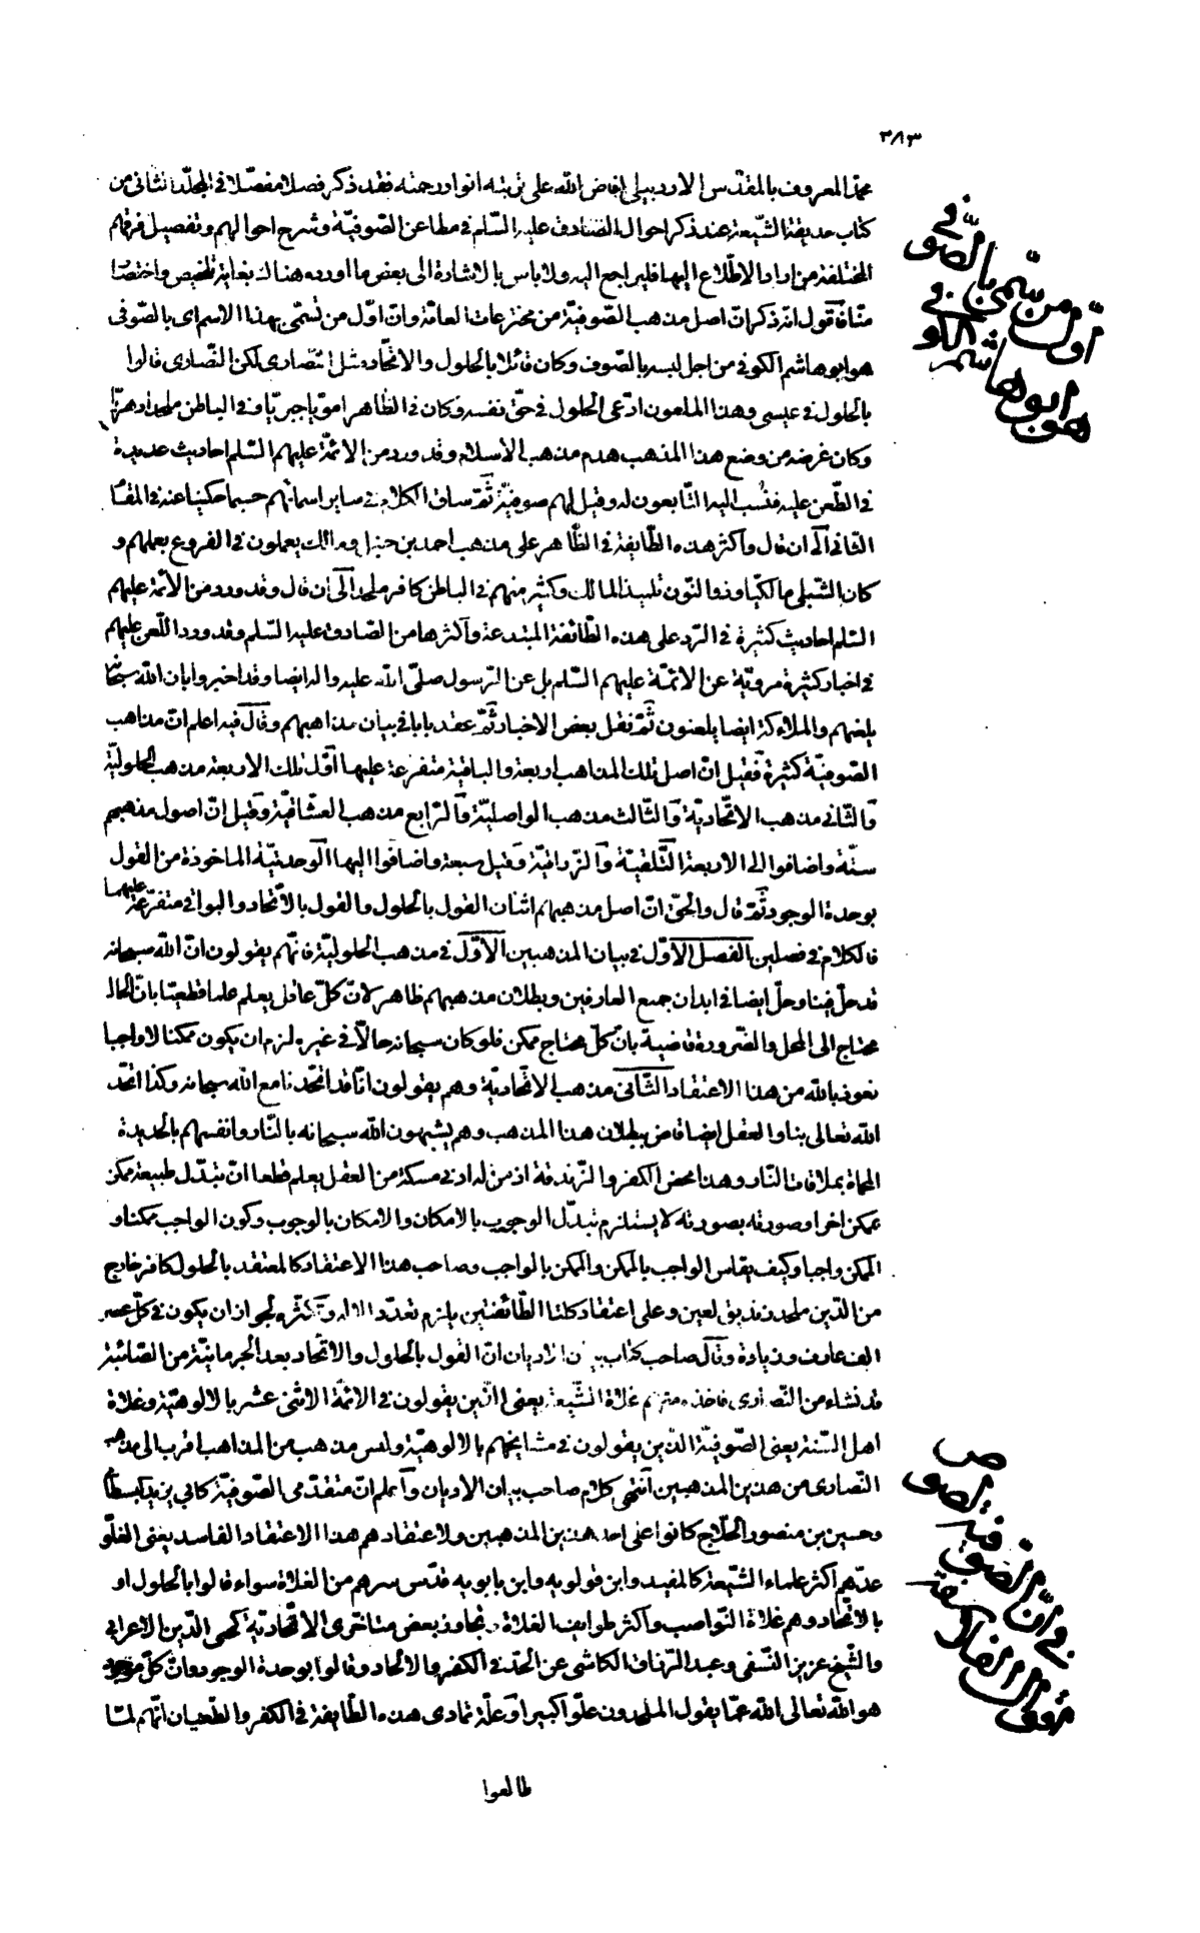 ٣٨٣
محمد المعروف بالمقدّس الاردبيلى افاض الله على تربته انوار رحمته فقد ذكر فصلا مفصّلا فى المجلّد الثانى من
كتاب حديقة الشّيعة عند ذكر احوال الصّادق عليه السّلم فى مطاعن الصّوفيّة وشرح احوالهم وتفصيل فرقهم
المختلفة من اراد الاطّلاع اليها فليراجع اليه ولا باس بالاشارة الى بعض ما اورده هناك بغاية تلخيص واختصار
منّا فاقول انّه ذكر انّ اصل مذهب الصّوفيّة من مخترعات العامّة وانّ اوّل من تسمّى بهذا الاسم اى بالصّوفى
هو ابو هاشم الكوفى من اجل لبسه بالصّوف وكان قائلا بالحلول والاتّحاد مثل النّصارى لكن النّصارى قالوا
بالحلول فى عيسى وهذا الملعون ادّعى الحلول فى حقّ نفسه وكان فى الظّاهر امويّا جبريّا وفى الباطن ملحدا دهريّا
وكان غرضه من وضع هذا المذهب هدم مذهب الاسلام وقد ورد من الائمّة عليهم السّلم احاديث عديدة
فى الطّعن عليه فنُسب اليه التّابعون له وقيل لهم صوفيّة ثمّ ساق الكلام فى ساير اسمائهم حسبما حكينا عنه فى المقام
الثّانى الى ان قال واكثر هذه الطّايفة فى الظّاهر على مذهب احمد بن حنبل ومالك يعملون فى الفروع بعملهم و
كان الشّبلى مالكيّا وذو النّون تلميذ المالك وكثير منهم فى الباطن كافر ملحد الى ان قال وقد ورد من الائمّة عليهم
السّلم احاديث كثيرة فى الرّد على هذه الطّائفة المبتدعة واكثرها من الصّادق عليه السّلم وقد ورد اللّعن عليهم
فى اخبار كثيرة مرويّة عن الائمّة عليهم السّلم بل عن الرّسول صلّى الله عليه واله ايضا وقد اخبروا بان الله سبحانه
يلعنهم والملائكة ايضا يلعنون ثمّ نقل بعض الاخبار ثمّ عقد بابا فى بيان مذاهبهم وقال فيه اعلم انّ مذاهب
الصّوفيّة كثيرة فقيل انّ اصل تلك المذاهب اربعة والباقية متفرعة عليها اوّل تلك الاربعة مذهب الحلوليّة
والثّانى مذهب الاتّحاديّة والثّالث مذهب الواصليّة والرّابع مذهب العشّاقيّة وقيل انّ اصول مذهبهم
ستّة واضافوا الى الاربعة التّلقينيّة والزّراقيّة وقيل سبعة واضافوا اليها الوحدتيّة الماخوذة من القول
بوحدة الوجود ثمّ قال والحقّ انّ اصل مذهبهم اثنان القول بالحلول والقول بالاتّحاد والبواقى متفرّعة عليهما
فالكلام فى فصلين الفصل الاوّل فى بيان المذهبين الاوّل فى مذهب الحلوليّة فانّهم يقولون انّ الله سبحانه
قد حلّ فينا وحلّ ايضا فى ابدان جميع العارفين وبطلان مذهبهم ظاهر لانّ كلّ عاقل يعلم علما قطعيّا بانّ الحالّ
محتاج الى المحل والضّرورة قاضية بان كلّ محتاج ممكن فلو كان سبحانه حالّا فى غيره لزم ان يكون ممكنا لا واجبا
نعوذ بالله من هذا الاعتقاد الثّانى مذهب الاتّحاديّة وهم يقولون انّا قد اتّحدنا مع الله سبحانه وكذا اتّحد
الله تعالى بنا والعقل ايضا قاض ببطلان هذا المذهب وهم يشبهون الله سبحانه بالنّار وانفسهم بالحديدة
المحماة بملاقات النّار وهذا محض الكفر والزّندقة اذ من له ادنى مسكة من العقل يعلم قطعا انّ تبدّل طبيعة ممكن
بممكن اخر او صورته بصورته لا يستلزم تبدّل الوجوب بالامكان والامكان بالوجوب وكون الواجب ممكنا و
الممكن واجبا وكيف يقاس الواجب بالممكن والممكن بالواجب وصاحب هذا الاعتقاد كالمعتقد بالحلول كافر خارج
من الدّين ملحد زنديق لعين وعلى اعتقاد كلتا الطّائفتين يلزم تعدّد الاله وتكثّره لجواز ان يكون فى كلّ عصر
الف عارف وزيادة وقال صاحب كتاب بيان الاديان انّ القول بالحلول والاتّحاد بعد الجرمانيّة من الصّائبة
قد نشاء من النّصارى فاخذه منهم غلاة الشّيعة يعنى الّذين يقولون فى الائمّة الاثنى عشر بالالوهيّة وغلاة
اهل السّنة يعنى الصّوفيّة الّذين يقولون فى مشايخهم بالالوهيّة وليس مذهب من المذاهب اقرب الى مذهب
النّصارى من هذين المذهبين انتهى كلام صاحب بيان الاديان واعلم انّ متقدّمى الصّوفيّة كابى يزيد البسطامى
وحسين بن منصور الحلّاج كانوا على احد هذين المذهبين ولاعتقادهم هذا الاعتقاد الفاسد يعنى الغلوّ
عدّهم اكثر علماء الشّيعة كالمفيد وابن قولويه وابن بابويه قدّس سرهم من الغلاة سواء قالوا بالحلول او
بالاتّحاد وهم غلاة النّواصب واكثر طوايف الغلاة وتجاوز بعض متاخّرى الاتّحاديّة كمحى الدّين الاعرابى
والشّيخ عزيز النّسفى وعبد الرّزاق الكاشى عن الحدّ فى الكفر والالحاد وقالوا بوحدة الوجود وانّ كلّ موجود
هو الله تعالى الله عمّا يقول الملحدون علوّا كبيرا وعلّة تمادى هذه الطّايفة فى الكفر والطّغيان انّهم لمّا
طالعوا
اوّل من سمّى بالصّوفى
هو ابو هاشم الكوفى
فى انّ الصّوفيّة